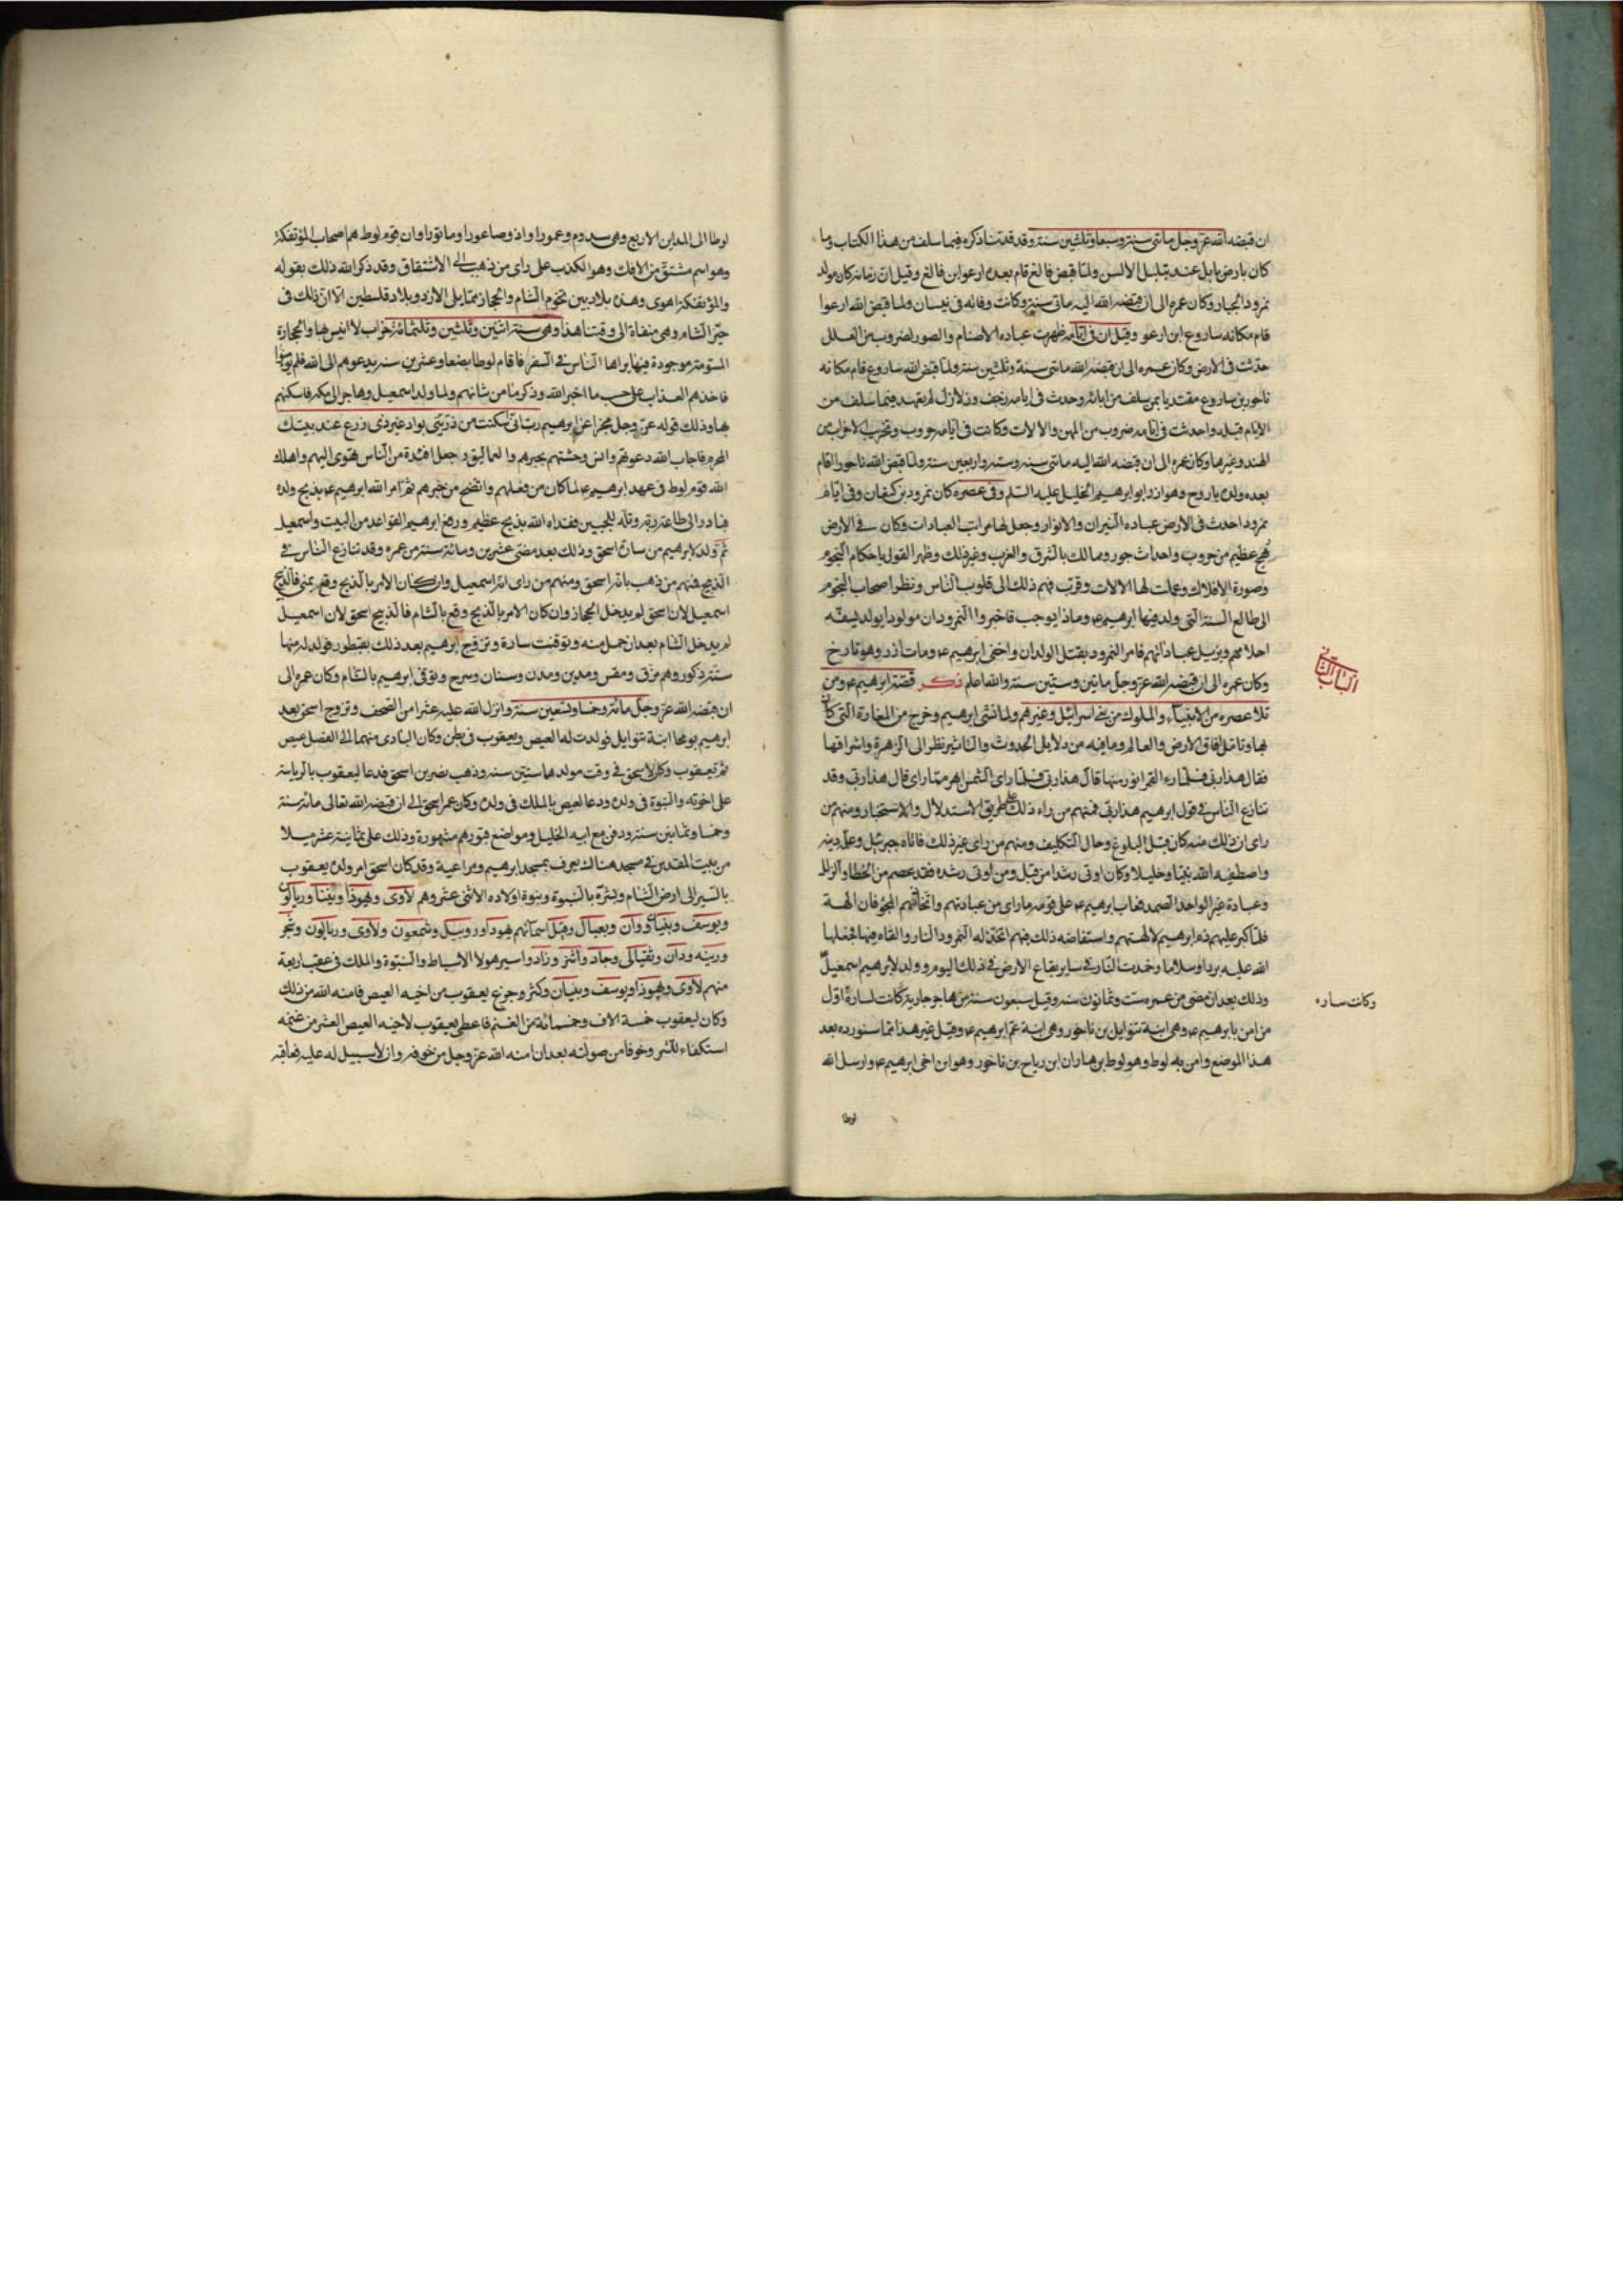 ان قبضه الله عز وجل مائتى سنة وسبعا وثلثين سنة وقد قدمنا ذكره فيما سلف من هذا الكتاب وما
كان بارض بابل عند تبلبل الالسن ولما قبض فالغ قام بعده ارعوا بن فالغ وقيل ان زمانه كان مولد
نمرود الجبار وكان عمره الى ان قبضه الله اليه مائتى سنة وكانت وفاته فى نيسان ولما قبض الله ارعوا
قام مكانه ساروع ابن ارعو وقيل ان فى ايامه ظهرت عباده الاصنام والصور لضروب من العلل
حدثت فى الارض وكان عمره الى ان قبضه الله مائتى سنة وثلثين سنة ولما قبض الله ساروع قام مكانه
ناحور بن ساروع مقتديا بمن سلف من ابائه وحدث فى ايامه رجف وزلازل لم يعهد فيما سلف من
الايام قبله واحدثت فى ايامه ضروب من المهن والالات وكانت فى ايامه حروب وتحزيب الاحزاب من
الهند وغيرها وكان عمره الى ان قبضه الله اليه مائتى سنه وسته واربعين سنة ولما قبض الله ناحورا قام
بعده ولده تارح وهو ازر ابو ابرهيم الخليل عليه السلم وفى عصره كان نمرود بن كنعان وفى ايام
نمرود احدث فى الارض عباده النيران والانوار وجعل لها مراتب العبادات وكان فى الارض
هج عظيم من حروب واحداث جور وممالك بالشرق والغرب وغير ذلك وظهر القول باحكام النجوم
وصورة الافلاك وعملت لها الالات وقرب فهم ذلك الى قلوب الناس ونظر اصحاب النجوم
الى طالع السنة التى ولد فيها ابرهيم ع وماذا يوجب فاخبروا النمرود ان مولودا يولد يسفه
احلامهم ويزيل عباداتهم فامر النمرود بقتل الولدان واخفى ابرهيم ع ومات ازر وهو تارخ
وكان عمره الى ان قبضه الله عز وجل مايتين وستين سنة والله اعلم ذكر قصة ابرهيم ع ومن
الباب الثانى
تلا عصره من الانبياء والملوك من بنى اسرائيل وغيرهم ولما نشى ابرهيم وخرج من المغارة التى كان
بها وتامل افاق الارض والعالم وما فيه من دلايل الحدوث والتاثير نظر الى الزهرة واشراقها
فقال هذا ربى فلما راء القمر انور منها قال هذا ربى فلما راى الشمس ابهر مما راى قال هذا ربى وقد
تنازع الناس فى قول ابرهيم هذا ربى فمنهم من راء ذلك على طريق الاستدلال والاستخبار ومنهم من
راى ان ذلك منه كان قبل البلوغ وحال التكليف ومنهم من راى غير ذلك فاتاه جبرئيل وعلمه دينه
واصطفيه الله نبيا وخليلا وكان اوتى رشدا من قبل ومن اوتى رشده فقد عصم من الخطا والزلل
وعبادة غير الواحد الصمد فعاب ابرهيم ع على قومه ما راى من عبادتهم واتخاذهم المجوفات الهة
فلما كبر عليهم ذم ابرهيم لالهتهم واستفاضه ذلك فيهم اتخذ له النمرود النار والقاه فيها فجعلها
الله عليه بردا وسلاما وخمدت النار فى ساير بقاع الارض فى ذلك اليوم وولد لابرهيم اسمعيل
وذلك بعد ان مضى من عمره ست وثمانون سنه وقيل سبعون سنة من هاجر جارية كانت لسارة اول
وكانت ساره
من امن بابرهيم ع وهى ابنة بتوايل بن ناخور وهى ابنة عم ابرهيم ع وقيل غير هذا مما سنورده بعد
هذا الموضع وامن به لوط وهو لوط بن هاران ابن رباح بن ناخور وهو ابن اخى ابرهيم ع وارسل الله
لوطا
لوطا الى المداين الاربع وهى سدوم وعمورا واذ وصاعورا ومانورا وان قوم لوط هم اصحاب المؤتفكة
وهو اسم مشتق من الافك وهو الكذب على راى من ذهب الى الاشتقاق وقد ذكر الله ذلك بقوله
والمؤتفكة اهوى وهذه بلاد بين تخوم الشام والحجاز مما يلى الاردو بلاد فلسطين الا ان ذلك فى
حيز الشام وهى مبقاة الى وقتنا هذا وهى سنة اثنين وثلثين وثلثمائة خراب لا انيس بها والحجارة
المسومة موجودة فيها يراها الناس فى السفر فاقام لوط بضعا وعشرين سنة يدعوهم الى الله فلم يؤمنوا
فاخذهم العذاب على حسب ما اخبر الله وذكر منا من شانهم ولما ولد اسمعيل وهاجر الى مكه فاسكنهم
بها وذلك قوله عز وجل مخبرا عن ابرهيم رب انى اسكنت من ذريتى بواد غير ذى زرع عند بيتك
المحرم فاجاب الله دعوتهم وانس وحشتهم بجرهم والعماليق وجعل افئدة من الناس تهوى اليهم واهلك
الله قوم لوط فى عهد ابرهيم ع لما كان من فعلهم واتضح من خبرهم ثم امر الله ابرهيم ع بذبح ولده
فبادر الى طاعة ربه وتله للجبين ففداه الله بذبح عظيم ورفع ابرهيم القواعد من البيت واسمعيل
ثم ولد لابرهيم من سارة اسحق وذلك بعد مضى عشرين ومائة سنة من عمره وقد تنازع الناس فى
الذبيح فمنهم من ذهب بانه اسحق ومنهم من راى انه اسمعيل وان كان الامر بالذبح وقع بمنى فالذبيح
اسمعيل لان اسحق لم يدخل الحجاز وان كان الامر بالذبح وقع بالشام فالذبيح اسحق لان اسمعيل
لم يدخل الشام بعد ان حمل منه وتوفيت سارة وتزوج ابرهيم بعد ذلك بقنطور فولد له منها
ستة ذكور وهم مرق ومقس ومدين ومدن وسنان وسرح وتوفى ابرهيم بالشام وكان عمره الى
ان قبضه الله عز وجل مائة وخمسا وتسعين سنة وانزل الله عليه عشرا من الصحف وتزوج اسحق بعد
ابرهيم بومحا ابنة بتوايل فولدت له العيص ويعقوب فى بطن وكان البادى منهما الى الفصل عيص
ثم يعقوب وكان لاسحق فى وقت مولدهما ستين سنه وذهب بصر بن اسحق فدعا ليعقوب بالرياسة
على اخوته والنبوة فى ولده ودعا لعيص بالملك فى ولده وكان عمر اسحق الى ان قبضه الله تعالى مائة سنة
وخمسا وثمانين سنة ودفن مع ابيه الخليل ومواضع قبورهم مشهورة وذلك على ثمانية عشر ميلا
من بيت المقدس فى مسجد هناك يعرف بمسجد ابرهيم ومراعية وقد كان اسحق امر ولده يعقوب
بالسير الى ارض الشام وبشره بالنبوة وبنوة اولاده الاثنى عشر وهم لاوى ويهوذا وبنيا وربالون
ويوسف وبنيان ودان وبعيال وقيل اسمائهم يهودا وروبيل وشمعون ولاوى وربالون وشجر
ورينه ودان ونفيالى وجاد واشز وزاد واسير هولا الاسباط والنبوة والملك فى عقب اربعة
منهم لاوى ويهوذا ويوسف وبنيان وكثر وجزع يعقوب من اخيه العيص فامنه الله من ذلك
وكان ليعقوب خمسة الاف وخمسمائة من الغنم فاعطى يعقوب لاخيه العيص العشر من غنمه
استكفاء للشر وخوفا من صولته بعد ان امنه الله عز وجل من خوفه وان لا سبيل له عليه فعاقبه